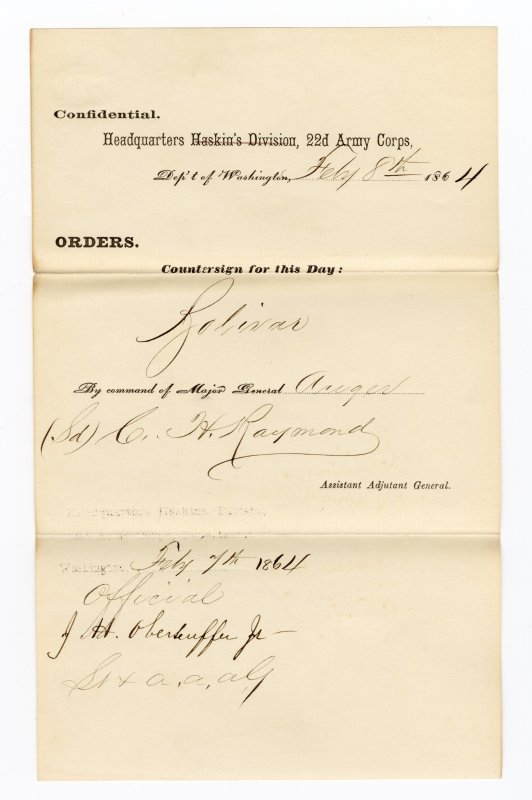 Confidential.
Headquarters Haskin's Division, 22d Army Corps,
Dep't of Washington, Feby 8th 1864
ORDERS.
Countersign for this Day:
Bolivar
By command of Major General Augur
(Sd) C. H. Raymond
Assistant Adjutant General.
Headquarters Haskins Division,
22d Army Corps
Washington Feby 7th 1864
Official
J. H. Oberteuffer Jr
Lt & a. a. a. G